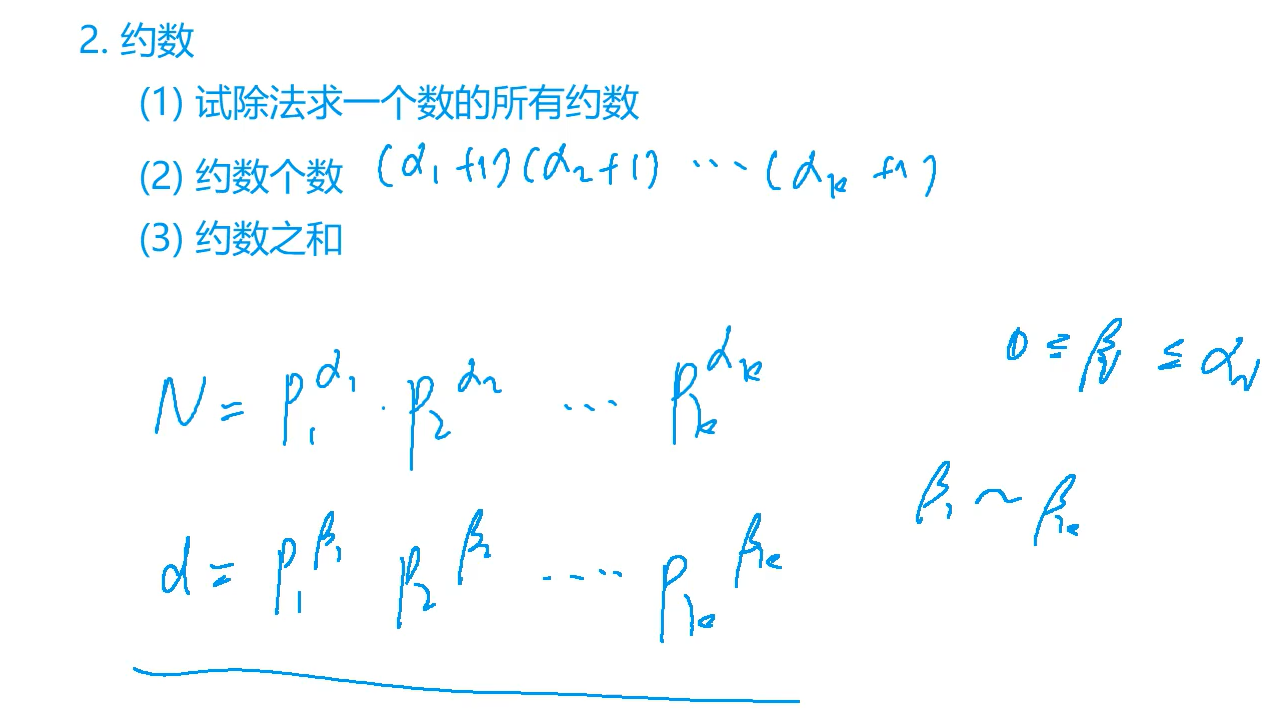 2. 约数
(1) 试除法求一个数的所有约数
(2) 约数个数 (α₁+1)(α₂+1) ··· (αₖ+1)
(3) 约数之和
0 ≤ βᵢ ≤ αᵢ
N = P₁^α₁ · P₂^α₂ ··· Pₖ^αₖ
β₁ ~ βₖ
d = P₁^β₁ P₂^β₂ ···· Pₖ^βₖ